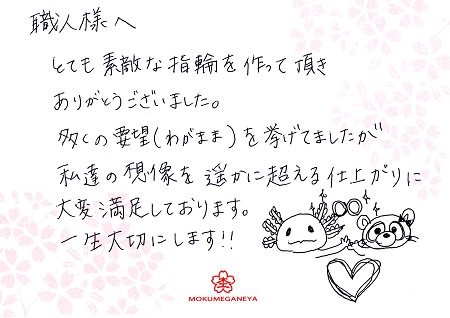 職人様へ
とても素敵な指輪を作って頂き
ありがとうございました。
多くの要望(わがまま)を挙げてましたが
私達の想像を遥かに超える仕上がりに
大変満足しております。
一生大切にします!!
MOKUMEGANEYA